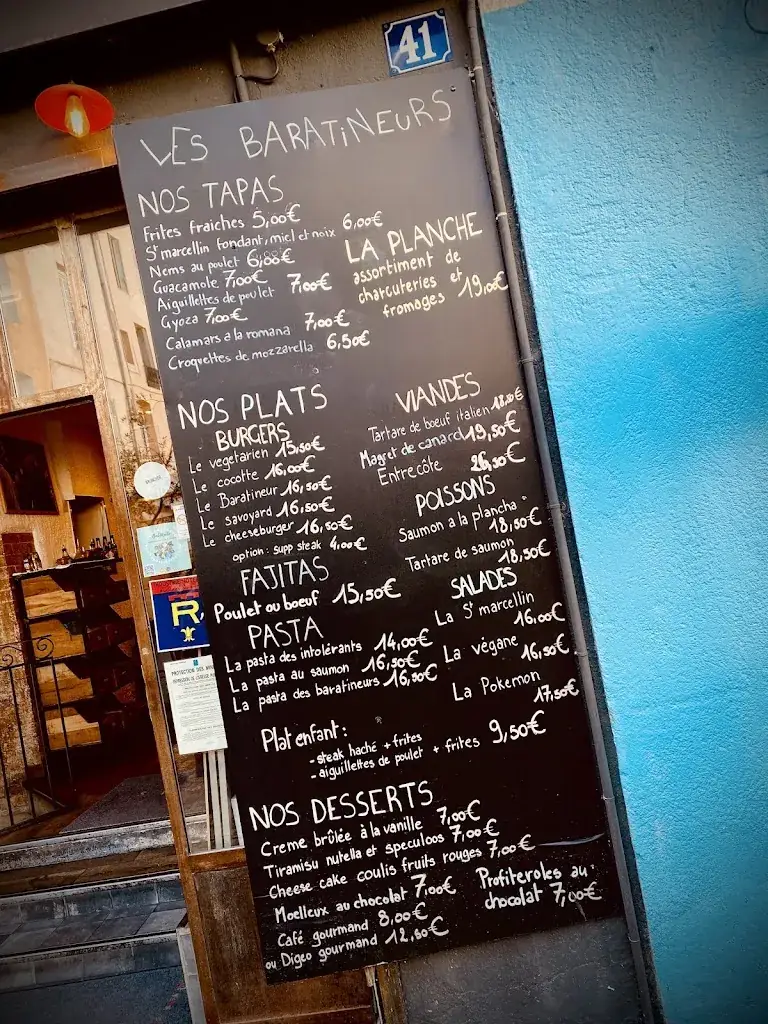 41
LES BARATINEURS
NOS TAPAS
Frites fraiches 5,00€
St marcellin fondant, miel et noix 6,00€
Nems au poulet 6,00€
Guacamole 7,00€
Aiguillettes de poulet 7,00€
Gyoza 7,00€
Calamars a la romana 7,00€
Croquettes de mozzarella 6,50€
LA PLANCHE
assortiment de
charcuteries et
fromages 19,00€
NOS PLATS
BURGERS
Le vegetarien 15,50€
Le cocotte 16,00€
Le Baratineur 16,50€
Le savoyard 16,50€
Le cheeseburger 16,50€
option : supp steak 4,00€
FAJITAS
Poulet ou boeuf 15,50€
PASTA
La pasta des intolérants 14,00€
La pasta au saumon 16,50€
La pasta des baratineurs 16,50€
VIANDES
Tartare de boeuf italien
Magret de canard 19,50€
Entrecôte 26,50€
POISSONS
Saumon a la plancha
18,50€
Tartare de saumon
18,50€
SALADES
La St marcellin
16,00€
La végane
16,50€
La Pokemon
17,50€
Plat enfant :
- steak haché + frites
- aiguillettes de poulet + frites 9,50€
NOS DESSERTS
Creme brûlée à la vanille 7,00€
Tiramisu nutella et speculoos 7,00€
Cheese cake coulis fruits rouges 7,00€
Moelleux au chocolat 7,00€
Café gourmand 8,00€
ou Digeo gourmand 12,50€
Profiteroles au
chocolat 7,00€
R